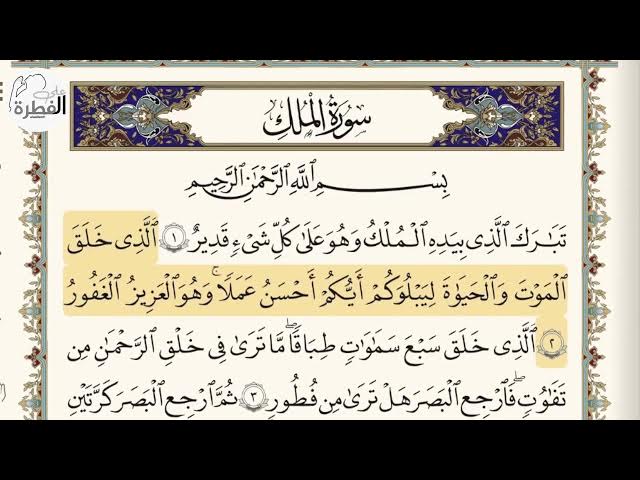 على
الفطرة
سُورَةُ الْمُلْكِ
بِسْمِ اللَّهِ الرَّحْمَٰنِ الرَّحِيمِ
تَبَٰرَكَ ٱلَّذِى بِيَدِهِ ٱلْمُلْكُ وَهُوَ عَلَىٰ كُلِّ شَىْءٍ قَدِيرٌ ١ ٱلَّذِى خَلَقَ
ٱلْمَوْتَ وَٱلْحَيَوٰةَ لِيَبْلُوَكُمْ أَيُّكُمْ أَحْسَنُ عَمَلًا ۚ وَهُوَ ٱلْعَزِيزُ ٱلْغَفُورُ
٢ ٱلَّذِى خَلَقَ سَبْعَ سَمَٰوَٰتٍ طِبَاقًا ۖ مَّا تَرَىٰ فِى خَلْقِ ٱلرَّحْمَٰنِ مِن
تَفَٰوُتٍ ۖ فَٱرْجِعِ ٱلْبَصَرَ هَلْ تَرَىٰ مِن فُطُورٍ ٣ ثُمَّ ٱرْجِعِ ٱلْبَصَرَ كَرَّتَيْنِ